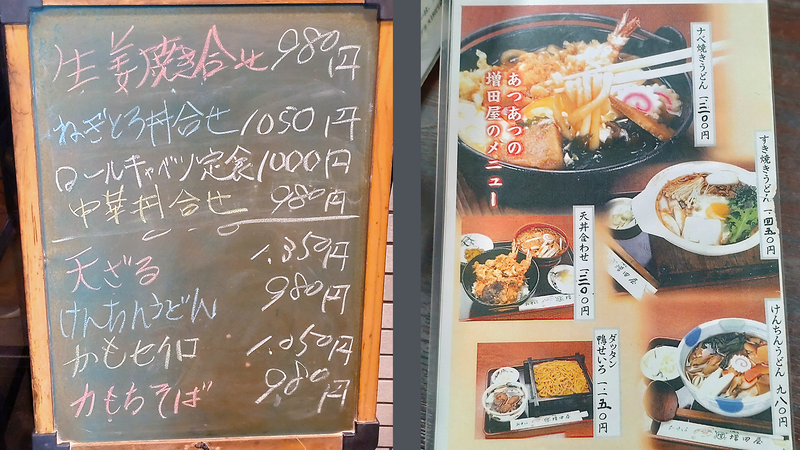 生姜焼き合せ 980円
ねぎとろ丼合せ 1050円
ロールキャベツ定食 1000円
中華丼合せ 980円
天ざる 1.350円
けんちんうどん 980円
かもセイロ 1.050円
力もちそば 980円
あつあつの
増田屋のメニュー
ナベ焼きうどん 一、三〇〇円
すき焼きうどん 一、四五〇円
天丼合わせ 一、三〇〇円
増田屋
ダッタン
鴨せいろ 一、一五〇円
増田屋
けんちんうどん 九八〇円
増田屋